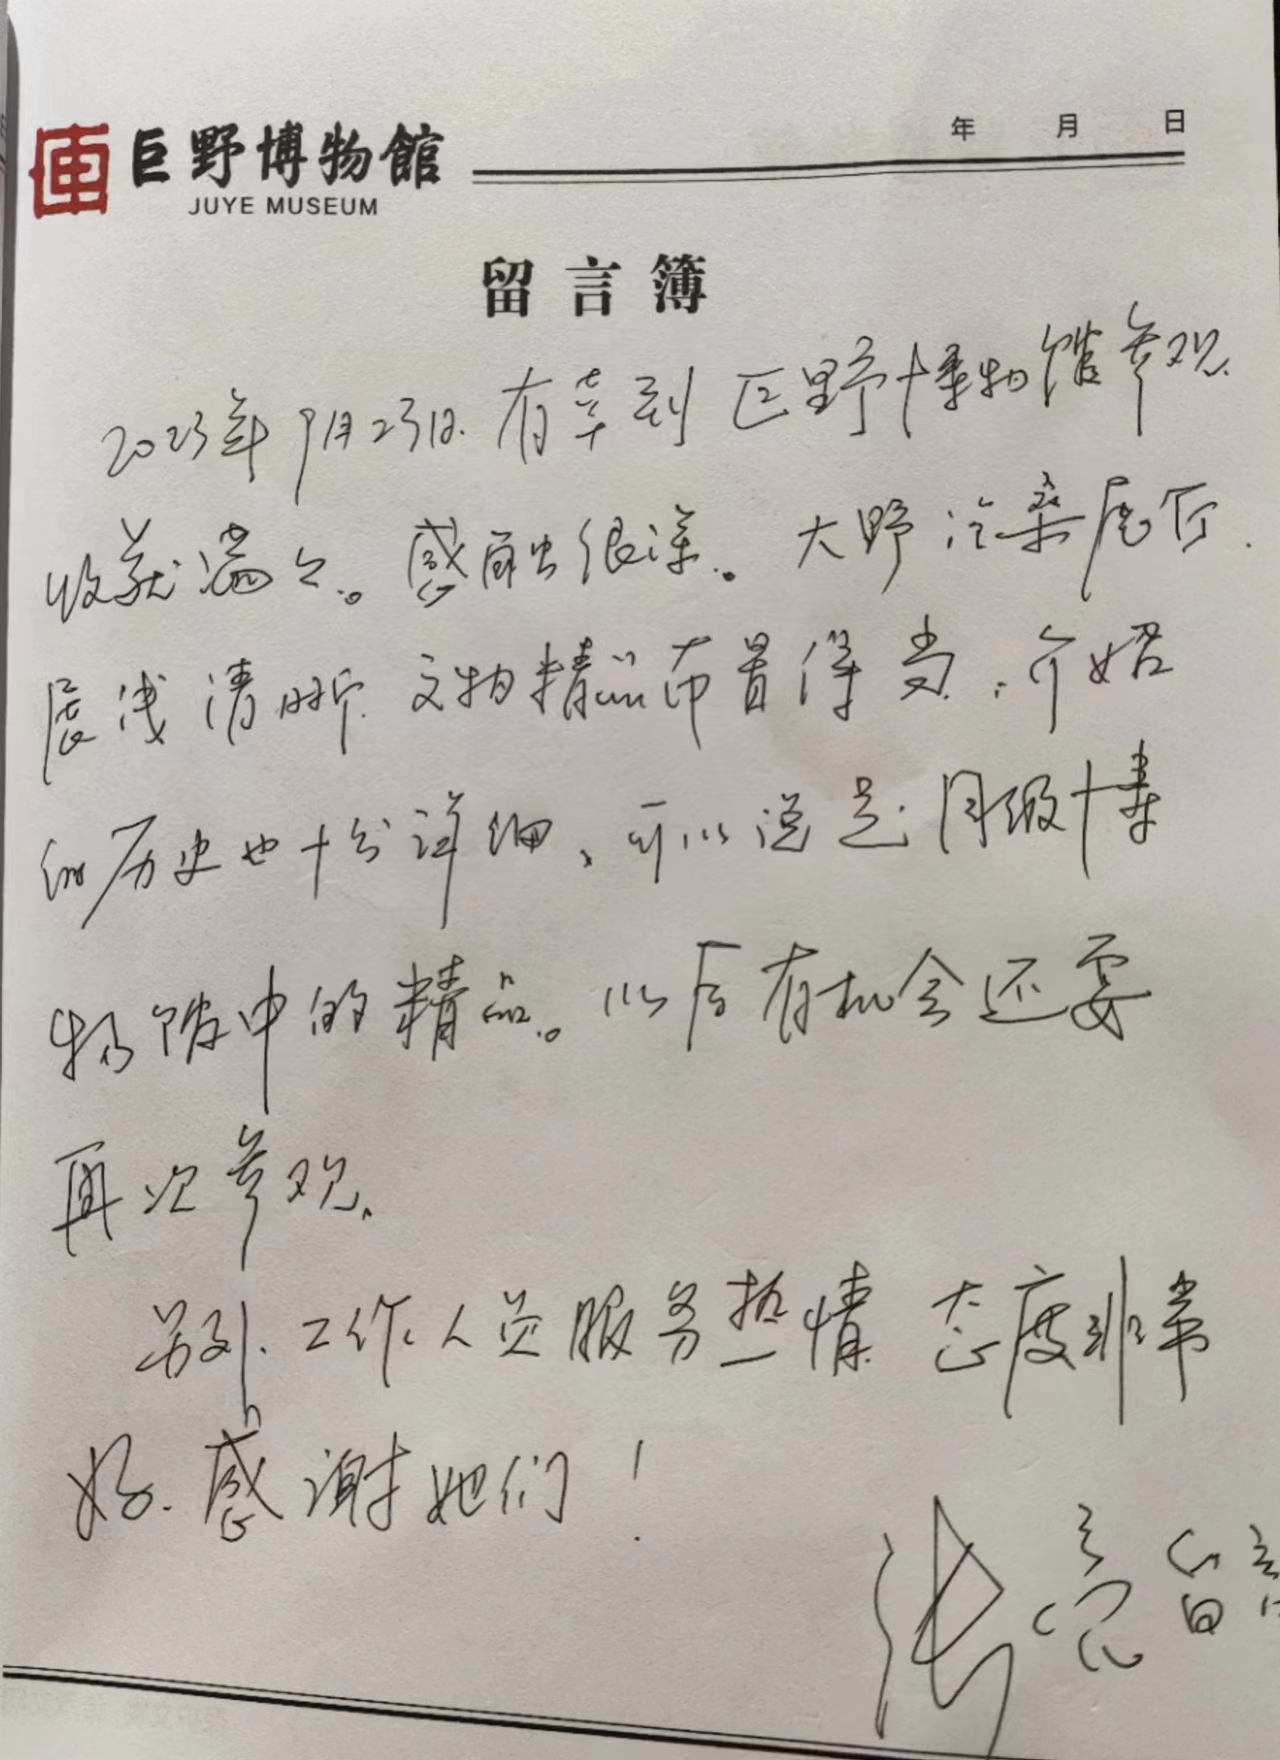 年 月 日
巨野博物館
JUYE MUSEUM
留言簿
2023年9月23日.有幸到巨野博物馆参观.
收获满之。感触很深。大野沧桑展厅.
展线清晰.文物精品布置得当.介绍
的历史也十分详细、可以说是同级博
物馆中的精品。以后有机会还要
再次参观、
另外、工作人员服务热情 态度非常
好.感谢她们！
张亮留言